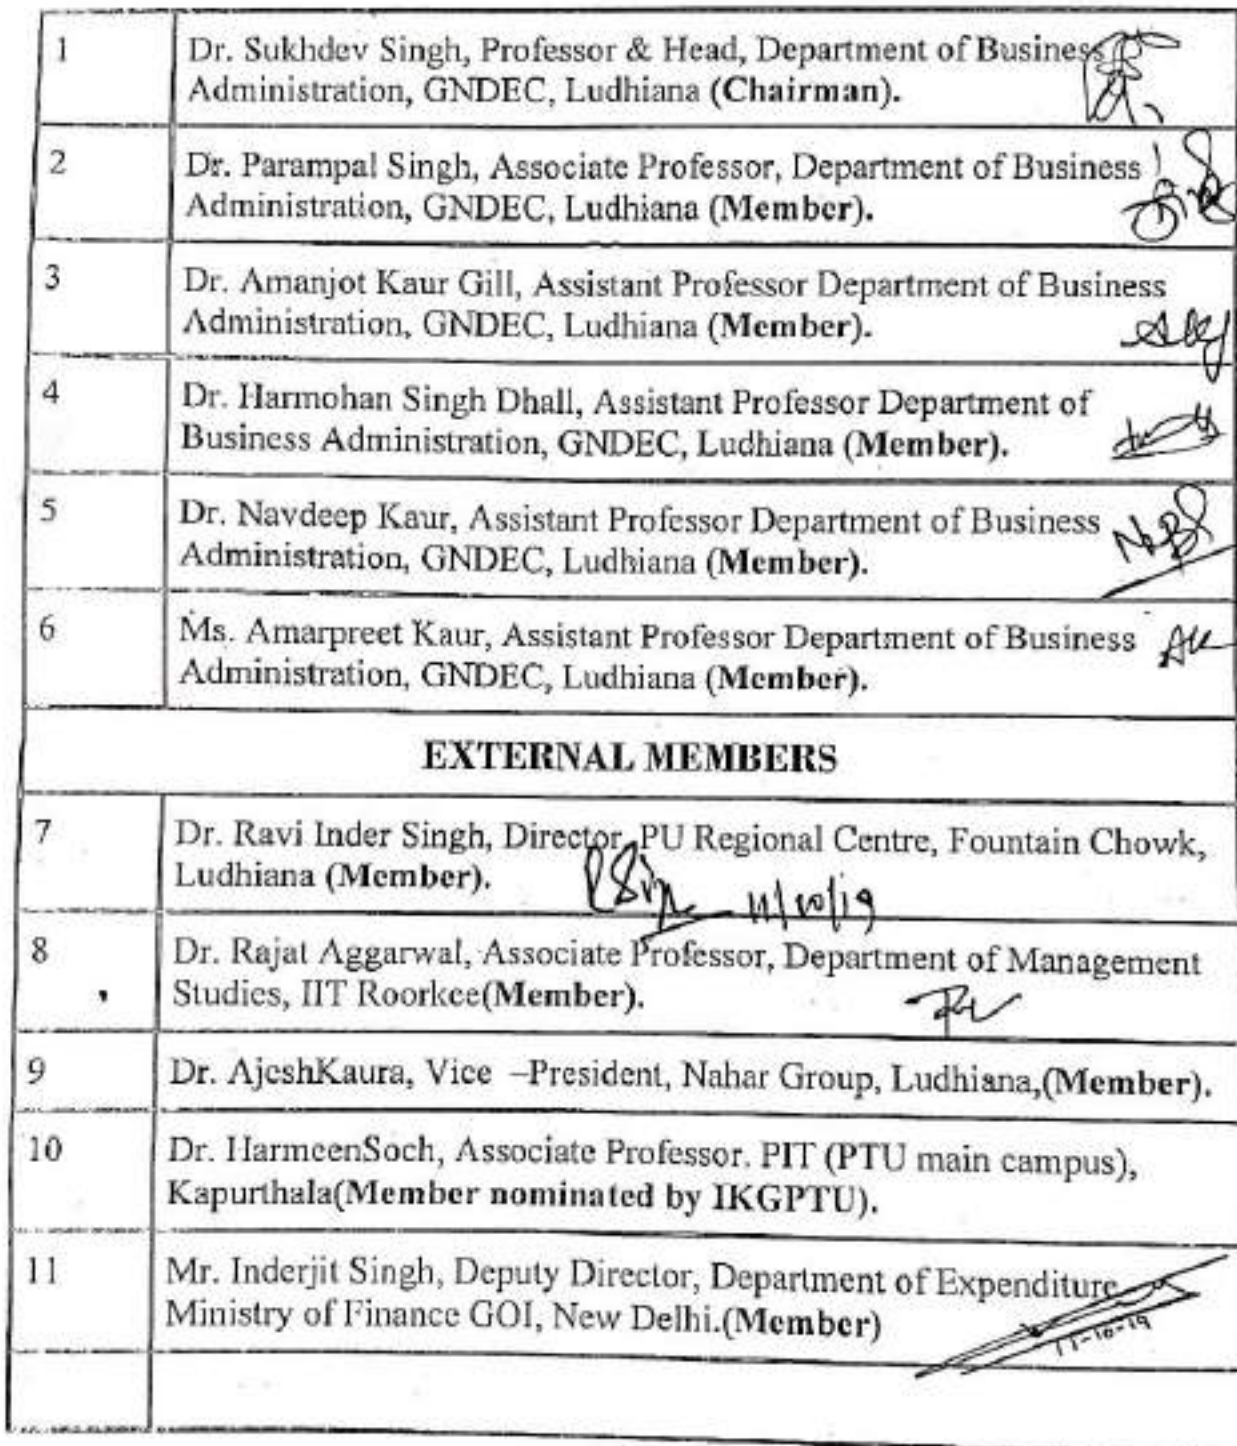 1 Dr. Sukhdev Singh, Professor & Head, Department of Business
Administration, GNDEC, Ludhiana (Chairman).
2 Dr. Parampal Singh, Associate Professor, Department of Business
Administration, GNDEC, Ludhiana (Member).
3 Dr. Amanjot Kaur Gill, Assistant Professor Department of Business
Administration, GNDEC, Ludhiana (Member).
4 Dr. Harmohan Singh Dhall, Assistant Professor Department of
Business Administration, GNDEC, Ludhiana (Member).
5 Dr. Navdeep Kaur, Assistant Professor Department of Business
Administration, GNDEC, Ludhiana (Member).
6 Ms. Amarpreet Kaur, Assistant Professor Department of Business
Administration, GNDEC, Ludhiana (Member).
EXTERNAL MEMBERS
7 Dr. Ravi Inder Singh, Director, PU Regional Centre, Fountain Chowk,
Ludhiana (Member).
11/10/19
8 Dr. Rajat Aggarwal, Associate Professor, Department of Management
Studies, IIT Roorkee(Member).
9 Dr. AjeshKaura, Vice –President, Nahar Group, Ludhiana,(Member).
10 Dr. HarmeenSoch, Associate Professor, PIT (PTU main campus),
Kapurthala(Member nominated by IKGPTU).
11 Mr. Inderjit Singh, Deputy Director, Department of Expenditure
Ministry of Finance GOI, New Delhi.(Member)
11-10-19